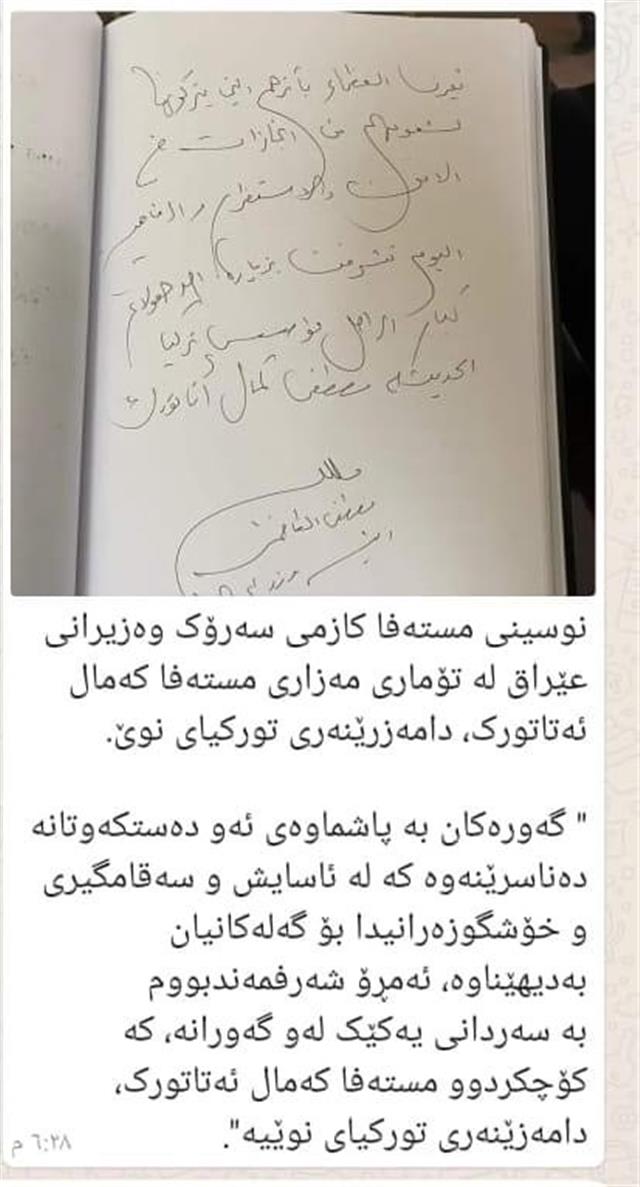 يعرف العظماء بأثرهم الذي يتركونه
لشعوبهم من انجازات في
الامن والاستقرار والرفاهية
اليوم تشرفت بزيارة احد هؤلاء
كبار الراحل مؤسس تركيا
الحديثة مصطفى كمال أتاتورك
مصطفى الكاظمي
نوسینی مستەفا کازمی سەرۆک وەزیرانی
عێراق لە تۆماری مەزاری مستەفا کەمال
ئەتاتورک، دامەزرێنەری تورکیای نوێ.
" گەورەکان بە پاشماوەی ئەو دەستکەوتانە
دەناسرێنەوە کە لە ئاسایش و سەقامگیری
و خۆشگوزەرانیدا بۆ گەلەکانیان
بەدیهێناوە، ئەمڕۆ شەرفمەندبووم
بە سەردانی یەکێک لەو گەورانە، کە
کۆچکردوو مستەفا کەمال ئەتاتورک،
دامەزێنەری تورکیای نوێیە".
٦:٢٨ م